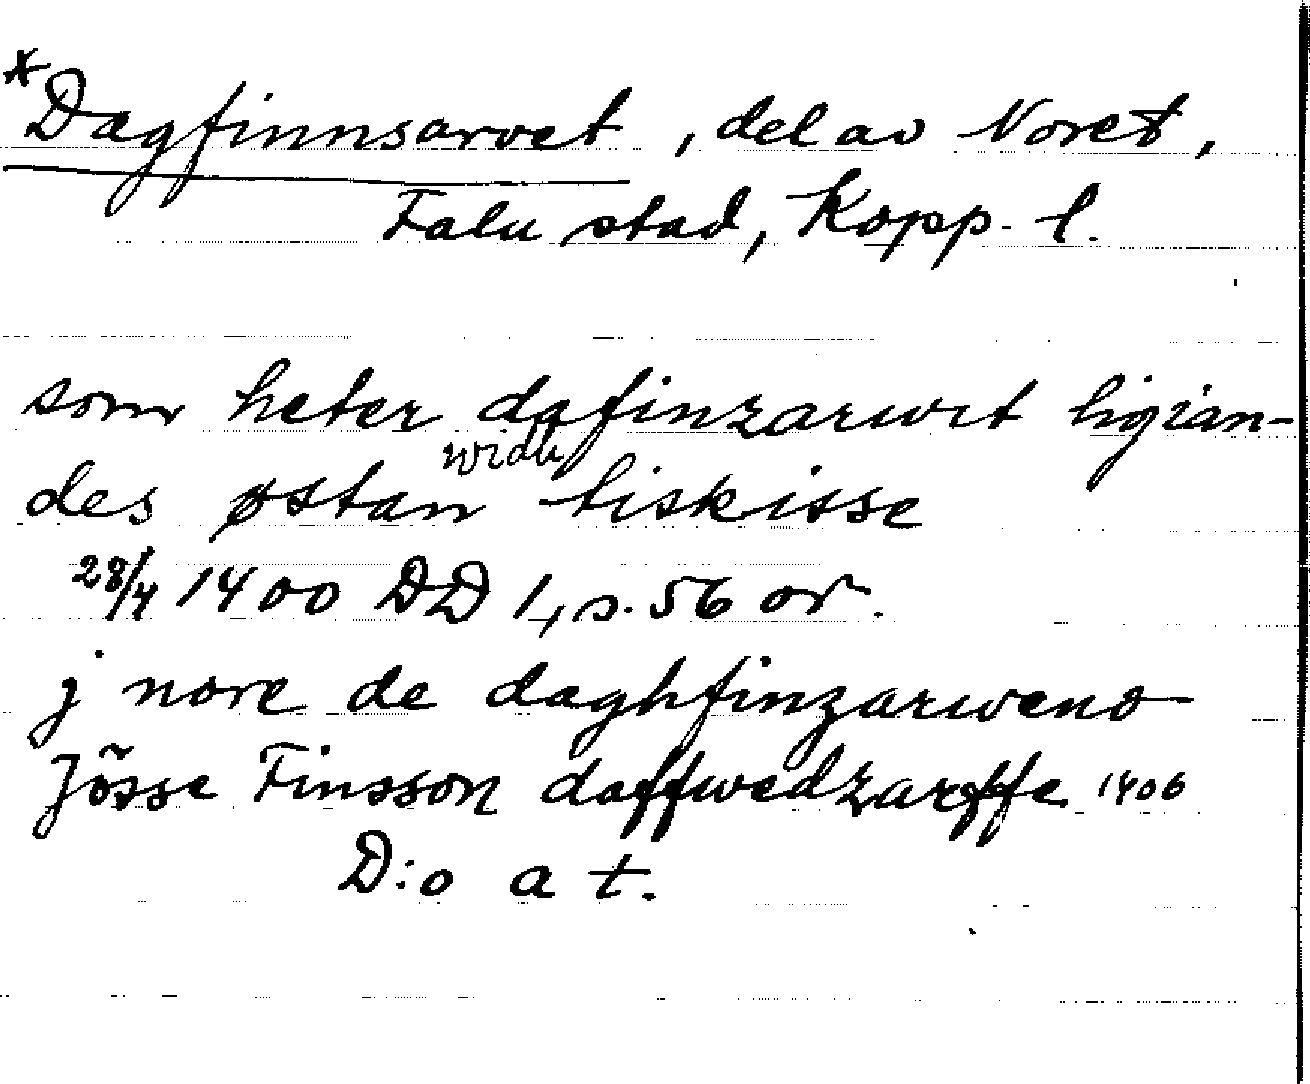 *Dagfinnsarvet, del av Noret,
Falu stad, Kopp. l.
som heter dafinzarwit ligian-
des østan widh tiskisse
28/4 1400 DD 1, s. 56 or.
j nore de daghfinzarweno
Jösse Finsson daffwedzarffe 1406
D:o a t.